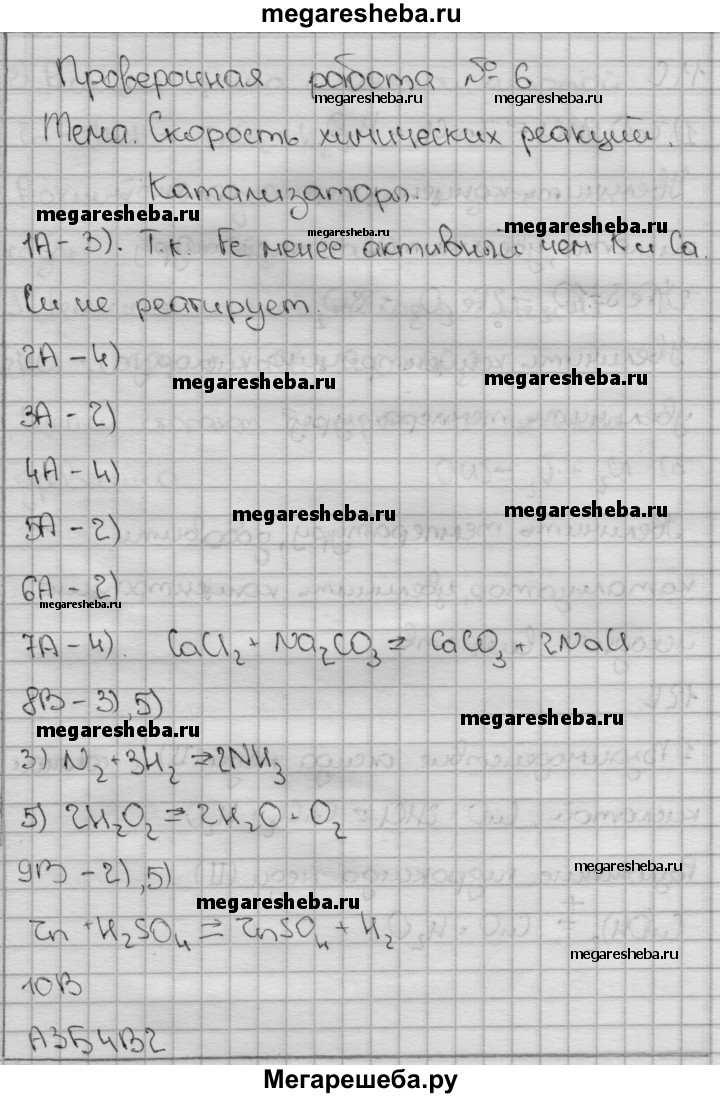 megaresheba.ru
Проверочная работа № 6
megaresheba.ru megaresheba.ru
Тема. Скорость химических реакций.
Катализаторы.
megaresheba.ru megaresheba.ru megaresheba.ru
1А - 3). Т.к. Fe менее активный чем K и Ca.
Cu не реагирует.
2А - 4)
megaresheba.ru megaresheba.ru
3А - 2)
4А - 4)
megaresheba.ru megaresheba.ru
5А - 2)
6А - 2)
megaresheba.ru
7А - 4). CaCl₂ + Na₂CO₃ = CaCO₃ + 2NaCl
8В - 3), 5)
megaresheba.ru megaresheba.ru
3) N₂ + 3H₂ ⇒ 2NH₃
5) 2H₂O₂ = 2H₂O + O₂
9В - 2), 5)
megaresheba.ru
megaresheba.ru
Zn + H₂SO₄ = ZnSO₄ + H₂
megaresheba.ru
10В
А3Б4В2
Мегарешеба.ру